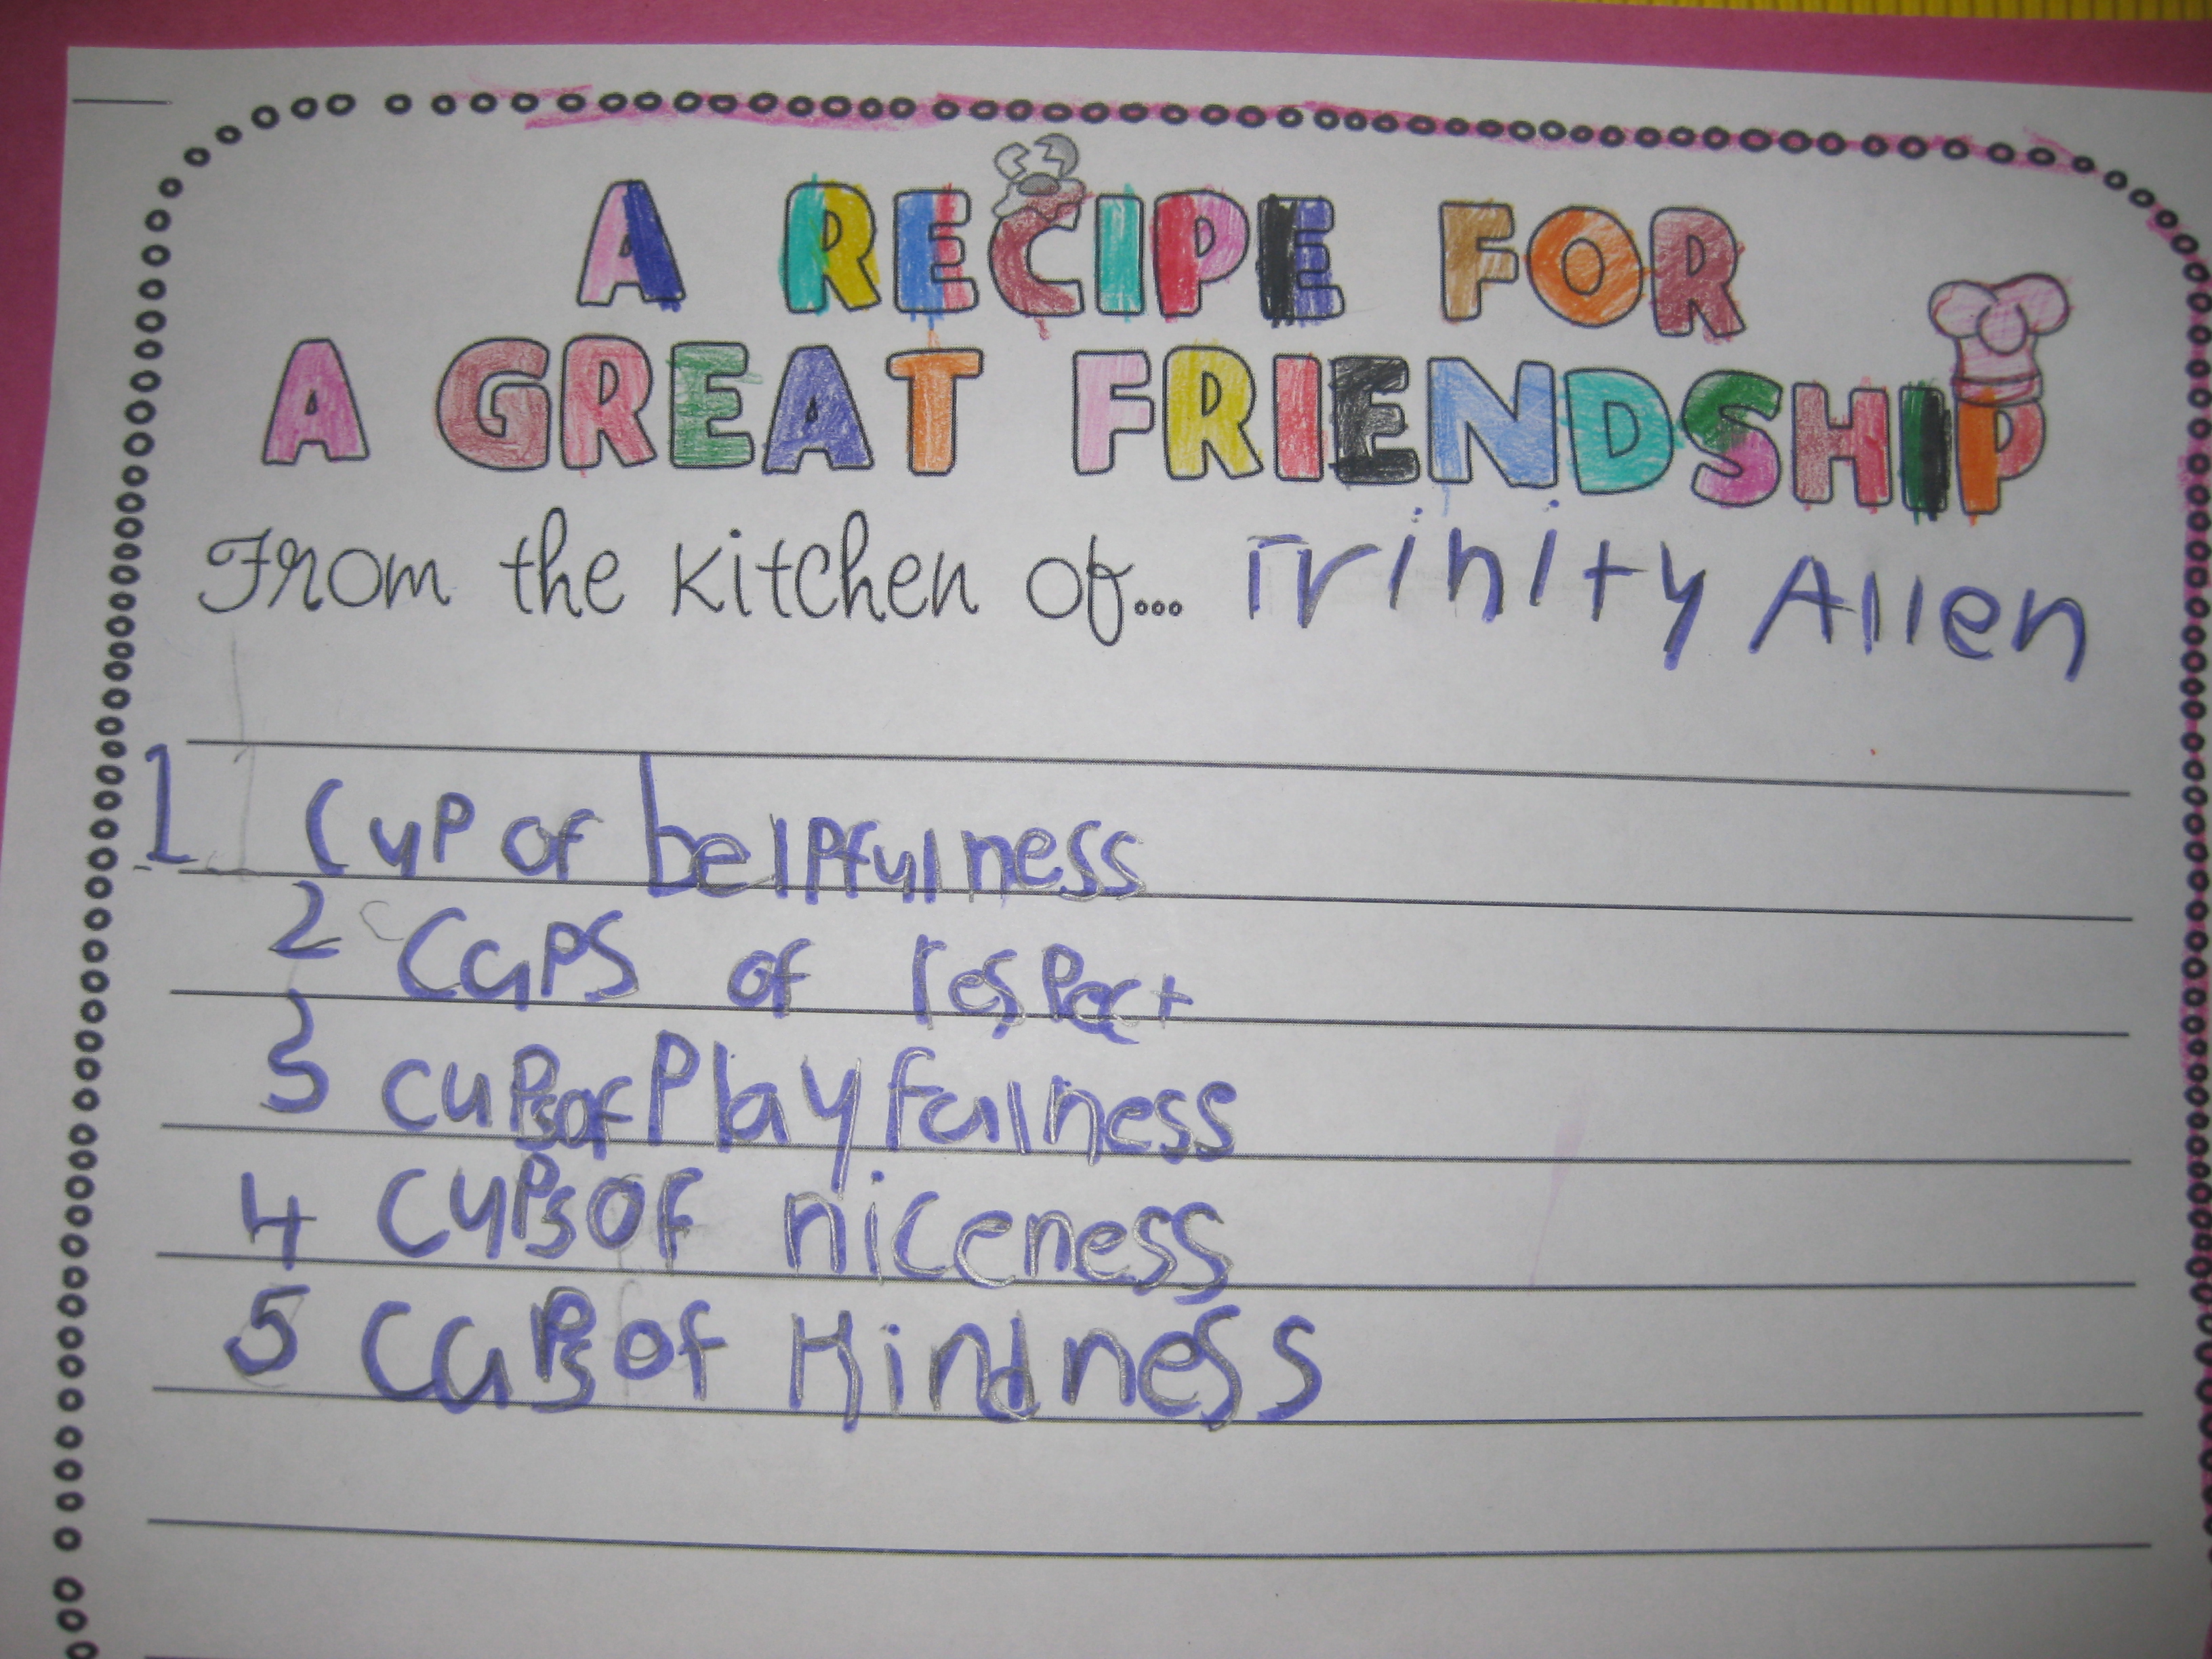 A RECIPE FOR
A GREAT FRIENDSHIP
From the kitchen of... Trinity Allen
1 Cup of helpfulness
2 Cups of respect
3 cups of Playfulness
4 Cups of niceness
5 Cups of Kindness